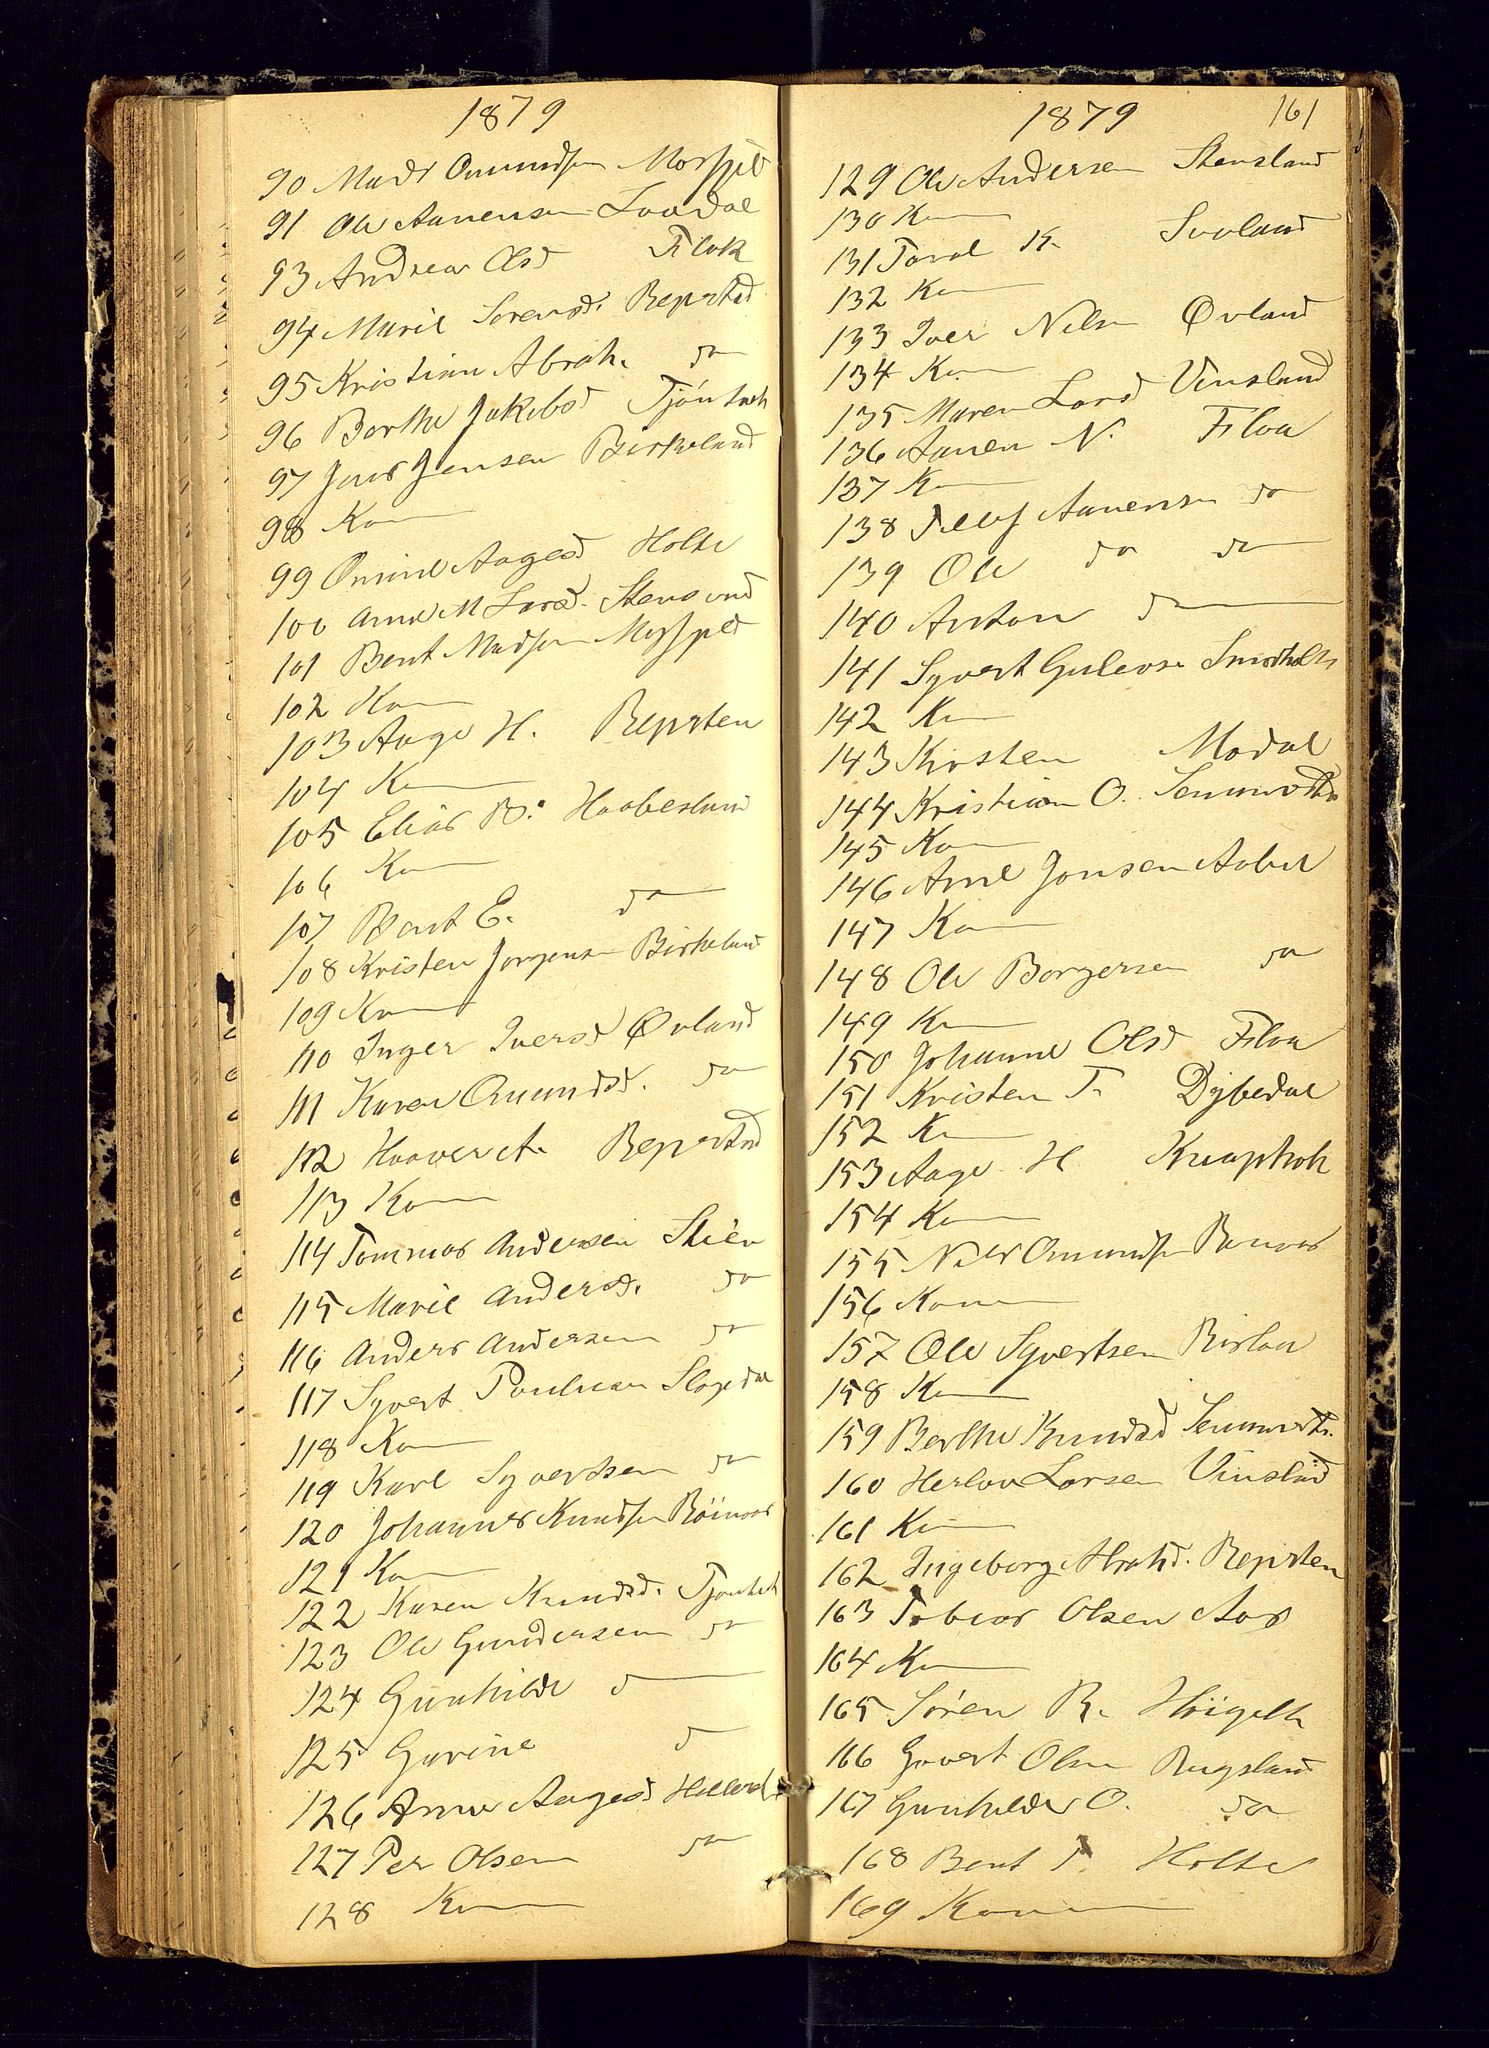 1879
90 Mads Omundsen Mosfjeld
91 Ole Aanensen Laudal
93 Andrea Olsd Flak
94 Marie Sørensd. Repstad
95 Kristian Abrah. do
96 Berthe Jakobsd Tjöntvet
97 Jens Jensen Birkeland
98 Kon
99 Omine Aagesd Holte
100 Anne M Larsd. Stensland
101 Bent Madsen Mosfjeld
102 Kon
103 Aage H. Repsten
104 Kon
105 Elias B. Haabesland
106 Kon
107 Bent E. do
108 Kristen Jørgensen Birkeland
109 Kon
110 Inger Iversd Øvland
111 Karen Omundsd. do
112 Haaver A. Repstad
113 Kon
114 Tommas Andersen
115 Marie Andersd. do
116 Anders Andersen do
117 Syvert Paulsen Slogedal
118 Kon
119 Karl Syvertsen do
120 Johannes Knudsen Röinaas
121 Kon
122 Karen Knudsd. Tjöntvet
123 Ole Gundersen do
124 Gunhilde d
125 Gurine d
126 Anne Aagesd
127 Per Olsen do
128 Kon
1879 161
129 Ole Andersen Stensland
130 Kon
131 Tarel K.
132 Kon
133 Iver Nilsen Øvland
134 Kon
135 Maren Larsd Vinsland
136 Aanen N. Flaa
137 Kon
138 Tellef Aanensen do
139 Ole do do
140 Anton d
141 Syvert Gulevsen Smedholt
142 Kon
143 Kirsten Modal
144 Kristian O.
145 Kon
146 Arne Jonsen Aabel
147 Kon
148 Ole Borgersen do
149 Kon
150 Johanne Olsd Flaa
151 Kristen T. Dybedal
152 Kon
153 Aage H.
154 Kon
155 Nils Omundsen
156 Kone
157 Ole Syvertsen
158 Kon
159 Berthe Knudsd
160 Herlov Larsen Vinsland
161 Kon
162 Ingeborg Abrahd. Repsten
163 Tobias Olsen Aas
164 Kon
165 Sören R.
166 Govert Olsen Rugsland
167 Gunhilde O. do
168 Bent T. Holte
169 Kone